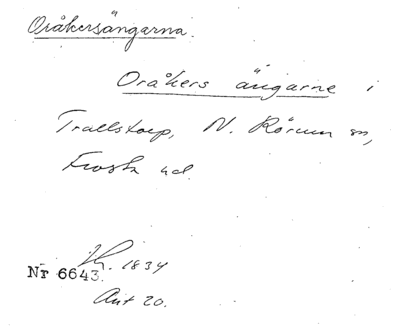 Oråkersängarna.
Oråkers ängarne i
Trullstorp, N. Rörum sn,
Frosta hd.
1834
Nr 6643.
Akt 20.